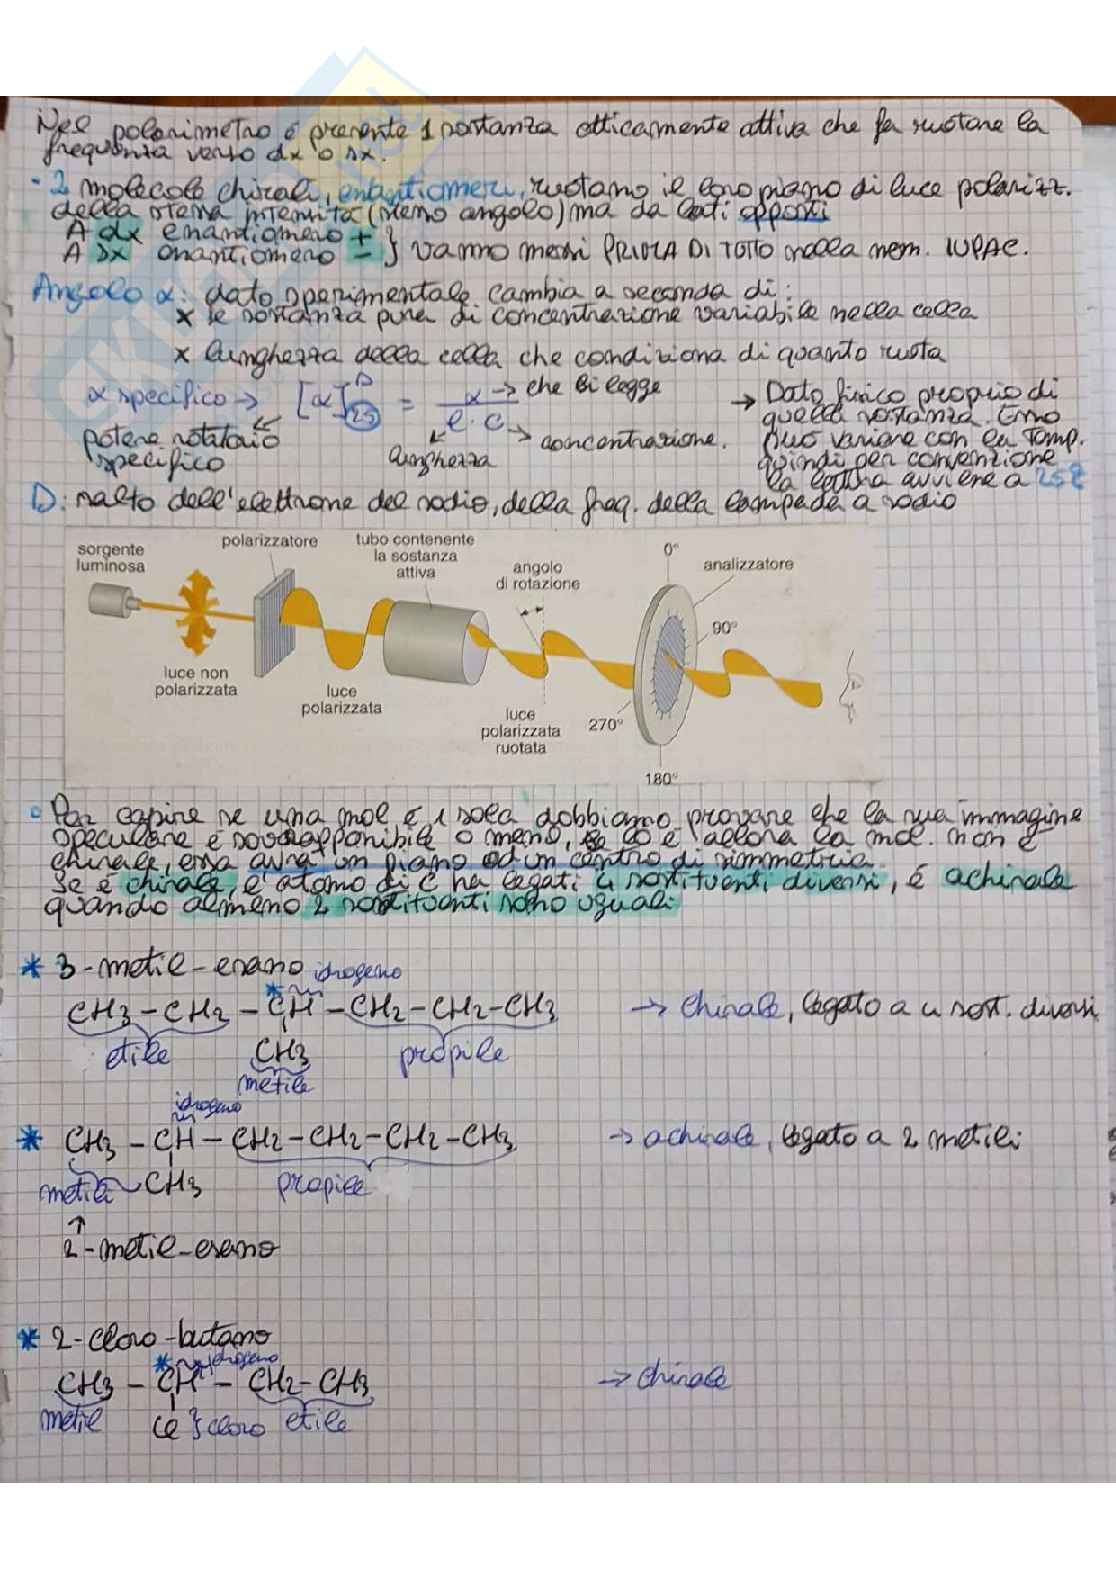 Nel polarimetro è presente 1 sostanza otticamente attiva che fa ruotare la
frequenza verso dx o sx.
- 2 molecole chirali, enantiomeri, ruotano il loro piano di luce polarizz.
della stessa intensità (stesso angolo) ma da lati opposti
A dx enantiomero +
A sx enantiomero - } vanno messi PRIMA DI TUTTO nella nom. IUPAC.
Angolo α: dato sperimentale cambia a seconda di:
x se sostanza pura di concentrazione variabile nella cella
x lunghezza della cella che condiziona di quanto ruota
α specifico → [α] D 25 = α / l · c → che si legge
potere rotatorio
specifico
lunghezza
→ concentrazione.
→ Dato fisico proprio di
quella sostanza. Esso
può variare con la Temp.
quindi per convenzione
la lettura avviene a 25°
D: salto dell'elettrone del sodio, della freq. della lampada a sodio
sorgente
luminosa
polarizzatore
tubo contenente
la sostanza
attiva
angolo
di rotazione
0°
analizzatore
90°
luce non
polarizzata
luce
polarizzata
luce
polarizzata
ruotata
270°
180°
Per capire se una mol è 1 sola dobbiamo provare che la sua immagine
speculare è sovrapponibile o meno, se lo è allora la mol. non è
chirale, essa avrà un piano od un centro di simmetria.
Se è chirale, l'atomo di C ha legati 4 sostituenti diversi, è achirale
quando almeno 2 sostituenti sono uguali.
* 3-metil-esano
idrogeno
*
CH3 - CH2 - CH - CH2 - CH2 - CH3 → chirale, legato a 4 sost. diversi
etile CH3 propile
metile
idrogeno
* CH3 - CH - CH2 - CH2 - CH2 - CH3 → achirale, legato a 2 metili
metili CH3 propile
↑
2-metil-esano
* 2-cloro-butano
* idrogeno
CH3 - CH - CH2 - CH3 → chirale
metil Cl } cloro etile